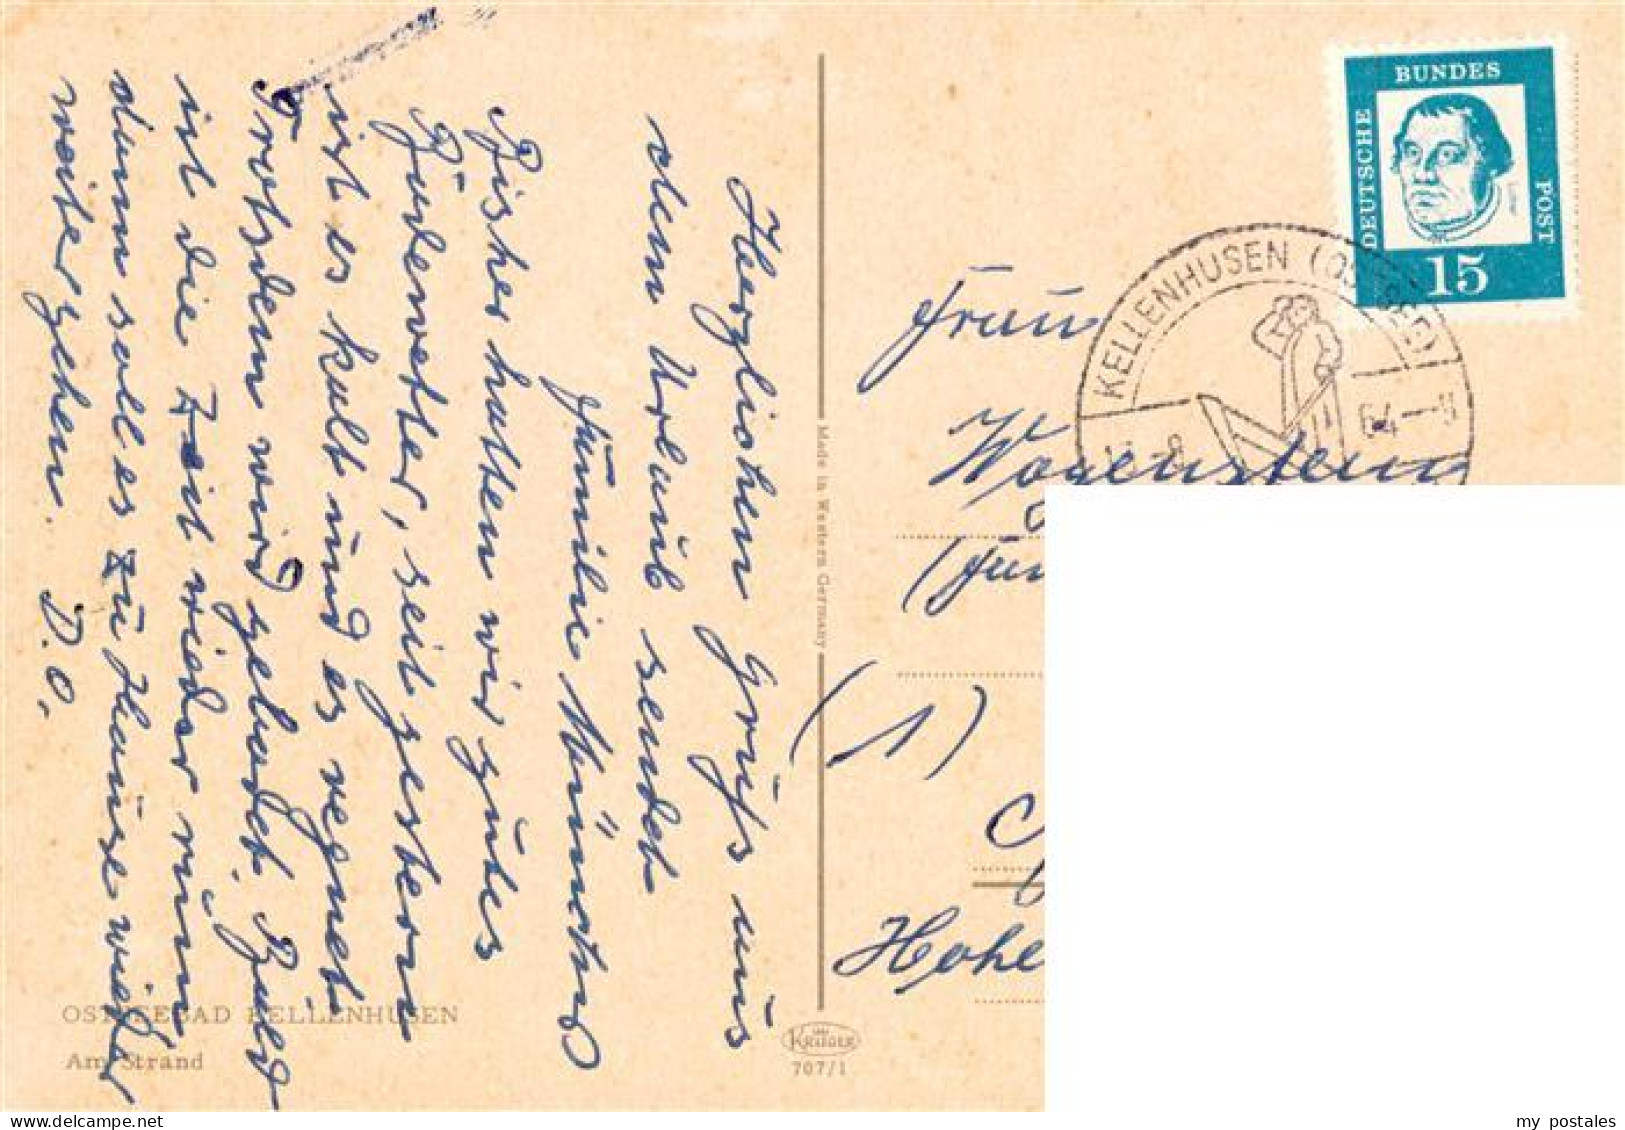 Herzlichen Gruß aus
dem Urlaub sendet
Familie
Bisher hatten wir gutes
Badewetter, seit gestern
ist es kalt und es regnet
Trotzdem wird gebadet. Bald
ist die Zeit wieder rum,
dann soll es zu Hause wieder
weiter gehen. D.O.
OSTSEEBAD KELLENHUSEN
Am Strand
Made in Western Germany
KRÜGER
707/1
DEUTSCHE
BUNDES
POST
15
KELLENHUSEN (OSTSEE)
64
Frau
(1)
Hohe
my postales